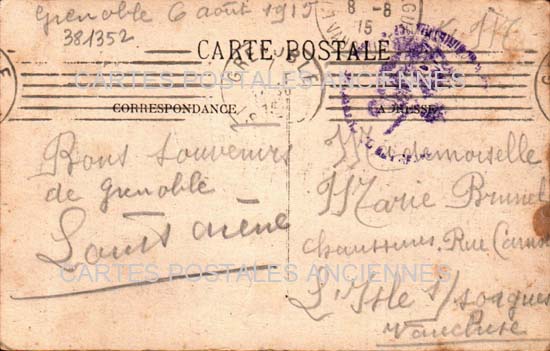 Grenoble 6 août 1915
381352
8-8
15
CARTE POSTALE
CORRESPONDANCE
ADRESSE
CARTES POSTALES ANCIENNES
Bons souvenirs
de Grenoble
Mademoiselle
Marie Brunel
Rue
L'Isle s/ sorgues
Vaucluse
CARTES POSTALES ANCIENNES
CARTES POSTALES ANCIENNES